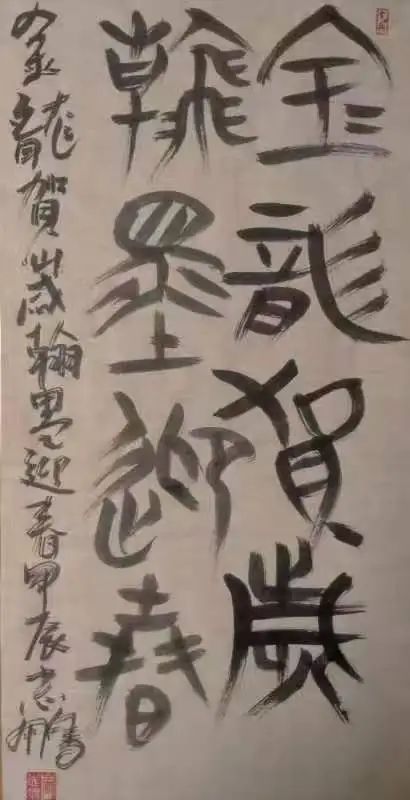 金龍賀歲
翰墨迎春
金龍賀歲翰墨迎春甲辰志鵬書